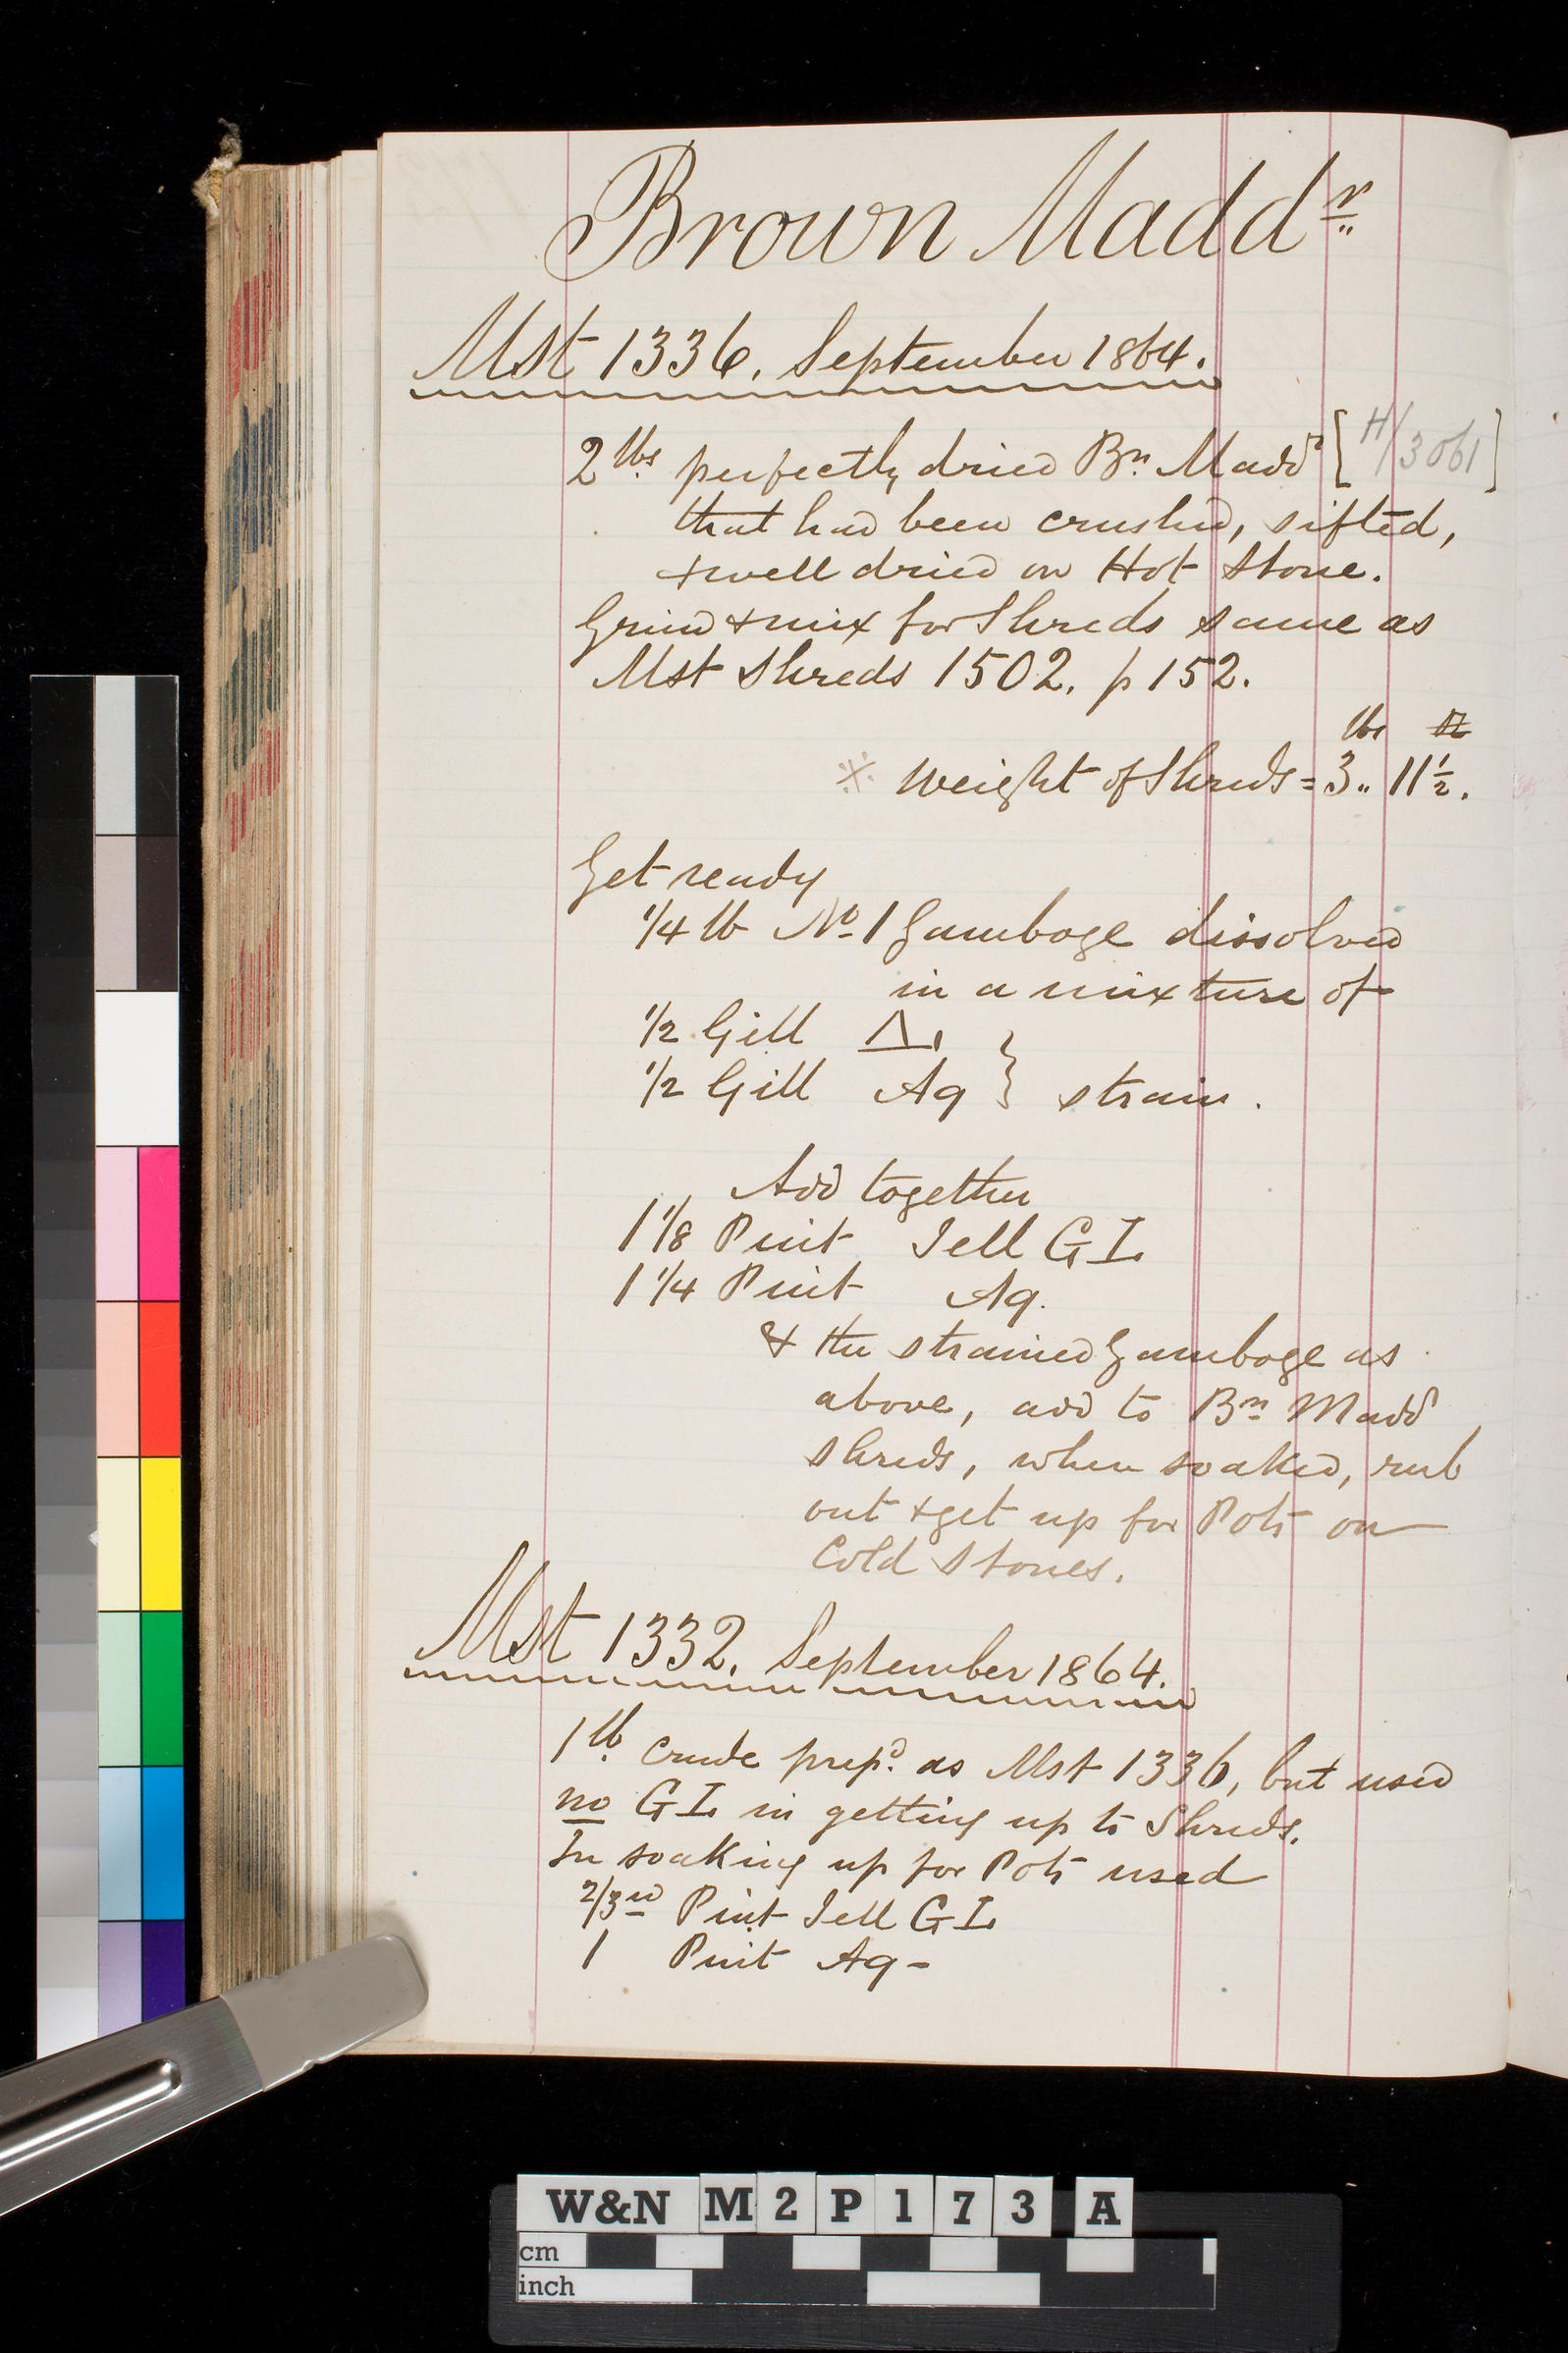 Brown Madd^r
Mst 1336. September 1864.
2 lbs perfectly dried Bn Madd^r [H/3061]
that had been crushed, sifted,
& well dried on Hot Stone.
Grind & mix for Shreds same as
Mst Shreds 1502. p 152.
lbs oz
※ Weight of Shreds = 3 ,, 11 1/2.
Get ready
1/4 lb No 1 Gamboge dissolved
in a mixture of
1/2 Gill
1/2 Gill Aq } strain.
Add together
1 1/8 Pint Jell GL
1 1/4 Pint Aq.
& the strained Gamboge as
above, add to Bn Madd^r
shreds, when soaked, rub
out & get up for Pots on
Cold Stones.
Mst 1332. September 1864.
1 lb crude prepd as Mst 1336, but used
no GL in getting up to Shreds.
In soaking up for Pots used
2/3rd Pint Jell GL
1 Pint Aq -
W&N M 2 P 1 7 3 A
cm
inch